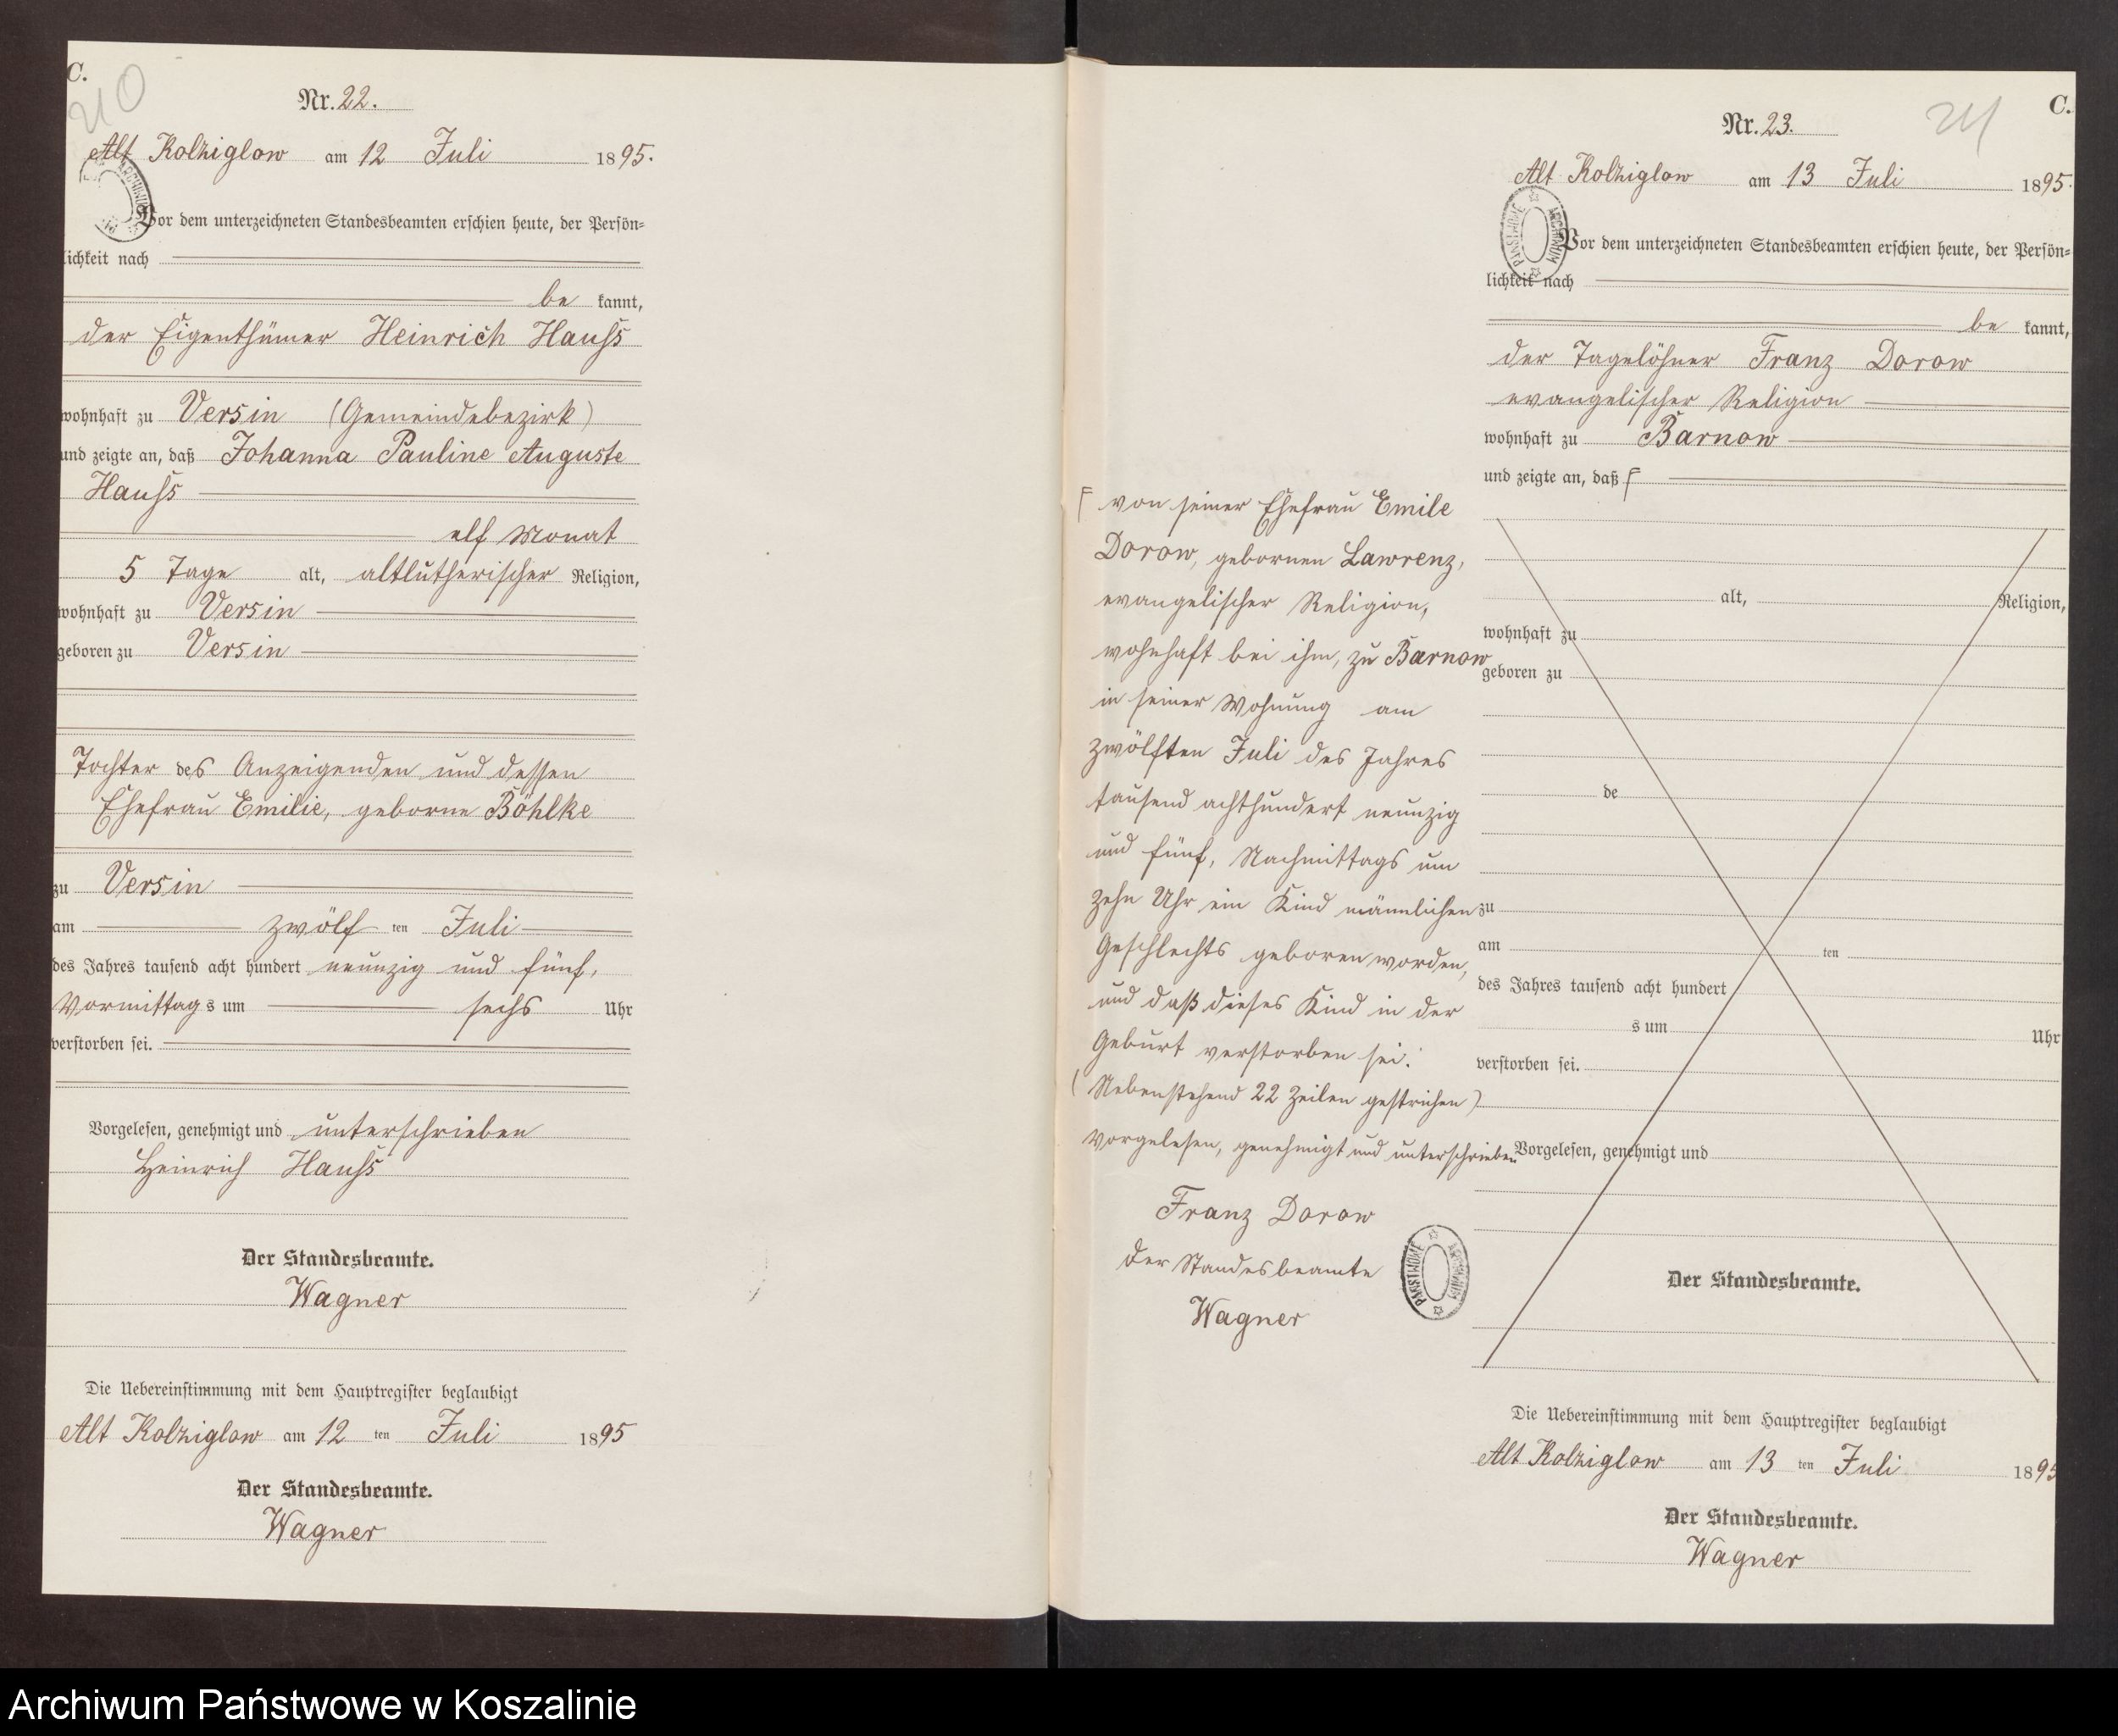 C.
210
Nr. 22.
Alt Kolziglow am 12 Juli 1895.
Vor dem unterzeichneten Standesbeamten erschien heute, der Persön-
lichkeit nach
be kannt,
der Eigenthümer Heinrich Hauss
wohnhaft zu Versin (Gemeindebezirk)
und zeigte an, daß Johanna Pauline Auguste
Hauss
elf Monat
5 Tage alt, altlutherischer Religion,
wohnhaft zu Versin
geboren zu Versin
Tochter des Anzeigenden und dessen
Ehefrau Emilie, geborne Böhlke
zu Versin
am zwölf ten Juli
des Jahres tausend acht hundert neunzig und fünf,
Vormittags um sechs Uhr
verstorben sei.
Vorgelesen, genehmigt und unterschrieben
Heinrich Hauss
Der Standesbeamte.
Wagner
Die Uebereinstimmung mit dem Hauptregister beglaubigt
Alt Kolziglow am 12 ten Juli 1895
Der Standesbeamte.
Wagner
C.
Nr. 23.
Alt Kolziglow am 13 Juli 1895.
ARCHIWUM PAŃSTWOWE
Vor dem unterzeichneten Standesbeamten erschien heute, der Persön-
lichkeit nach
be kannt,
der Tagelöhner Franz Dorow
evangelischer Religion
wohnhaft zu Barnow
und zeigte an, daß
von seiner Ehefrau Emile
Dorow, gebornen Lawrenz,
evangelischer Religion,
wohnhaft bei ihm, zu Barnow
in seiner Wohnung am
zwölften Juli des Jahres
tausend achthundert neunzig
und fünf, Nachmittags um
zehn Uhr ein Kind männlichen
Geschlechts geboren worden,
und daß dieses Kind in der
Geburt verstorben sei.
(Nebenstehend 22 Zeilen gestrichen)
Vorgelesen, genehmigt und unterschrieben
Franz Dorow
Der Standesbeamte
Wagner
ARCHIWUM PAŃSTWOWE
alt, Religion,
wohnhaft zu
geboren zu
de
zu
am ten
des Jahres tausend acht hundert
s um Uhr
verstorben sei.
Vorgelesen, genehmigt und
Der Standesbeamte.
Die Uebereinstimmung mit dem Hauptregister beglaubigt
Alt Kolziglow am 13 ten Juli 1895
Der Standesbeamte.
Wagner
Archiwum Państwowe w Koszalinie